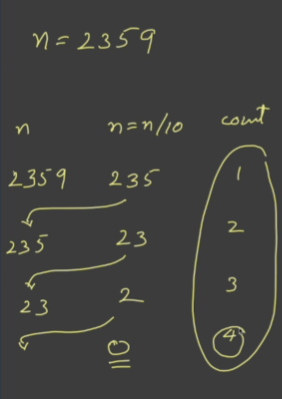 n = 2359
n n=n/10 count
2359 235 1
235 23 2
23 2 3
0 4